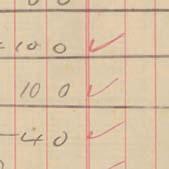 0 0
= 10 0 ✓
10 0 ✓
- 4 0 ✓